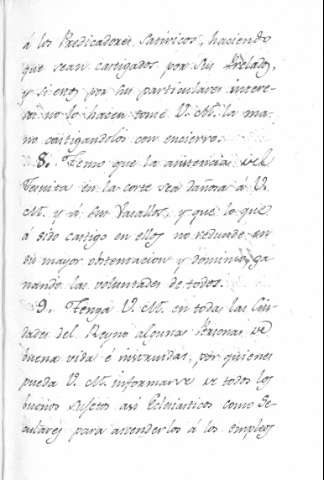 á los Predicadores Satiricos, haciendo
que sean castigados por sus Prelados,
y si estos por sus particulares intere-
ses no lo hacen tome V. M. la ma-
no castigandolos con encierro.
8. Temo que la asistencia del
en la corte sea dañosa á V.
M. y á sus Vasallos, y que lo que
á sido castigo en ellos no redunde en
su mayor obstentacion y dominio, ga
nando las voluntades de todos.
9. Tenga V. M. en todas las Ciu-
dades del Reyno algunas Personas de
buena vida é instruidas, por quienes
pueda V. M. informarse de todos los
buenos sujetos asi Eclesiasticos como Se-
culares para atenderlos á los empleos